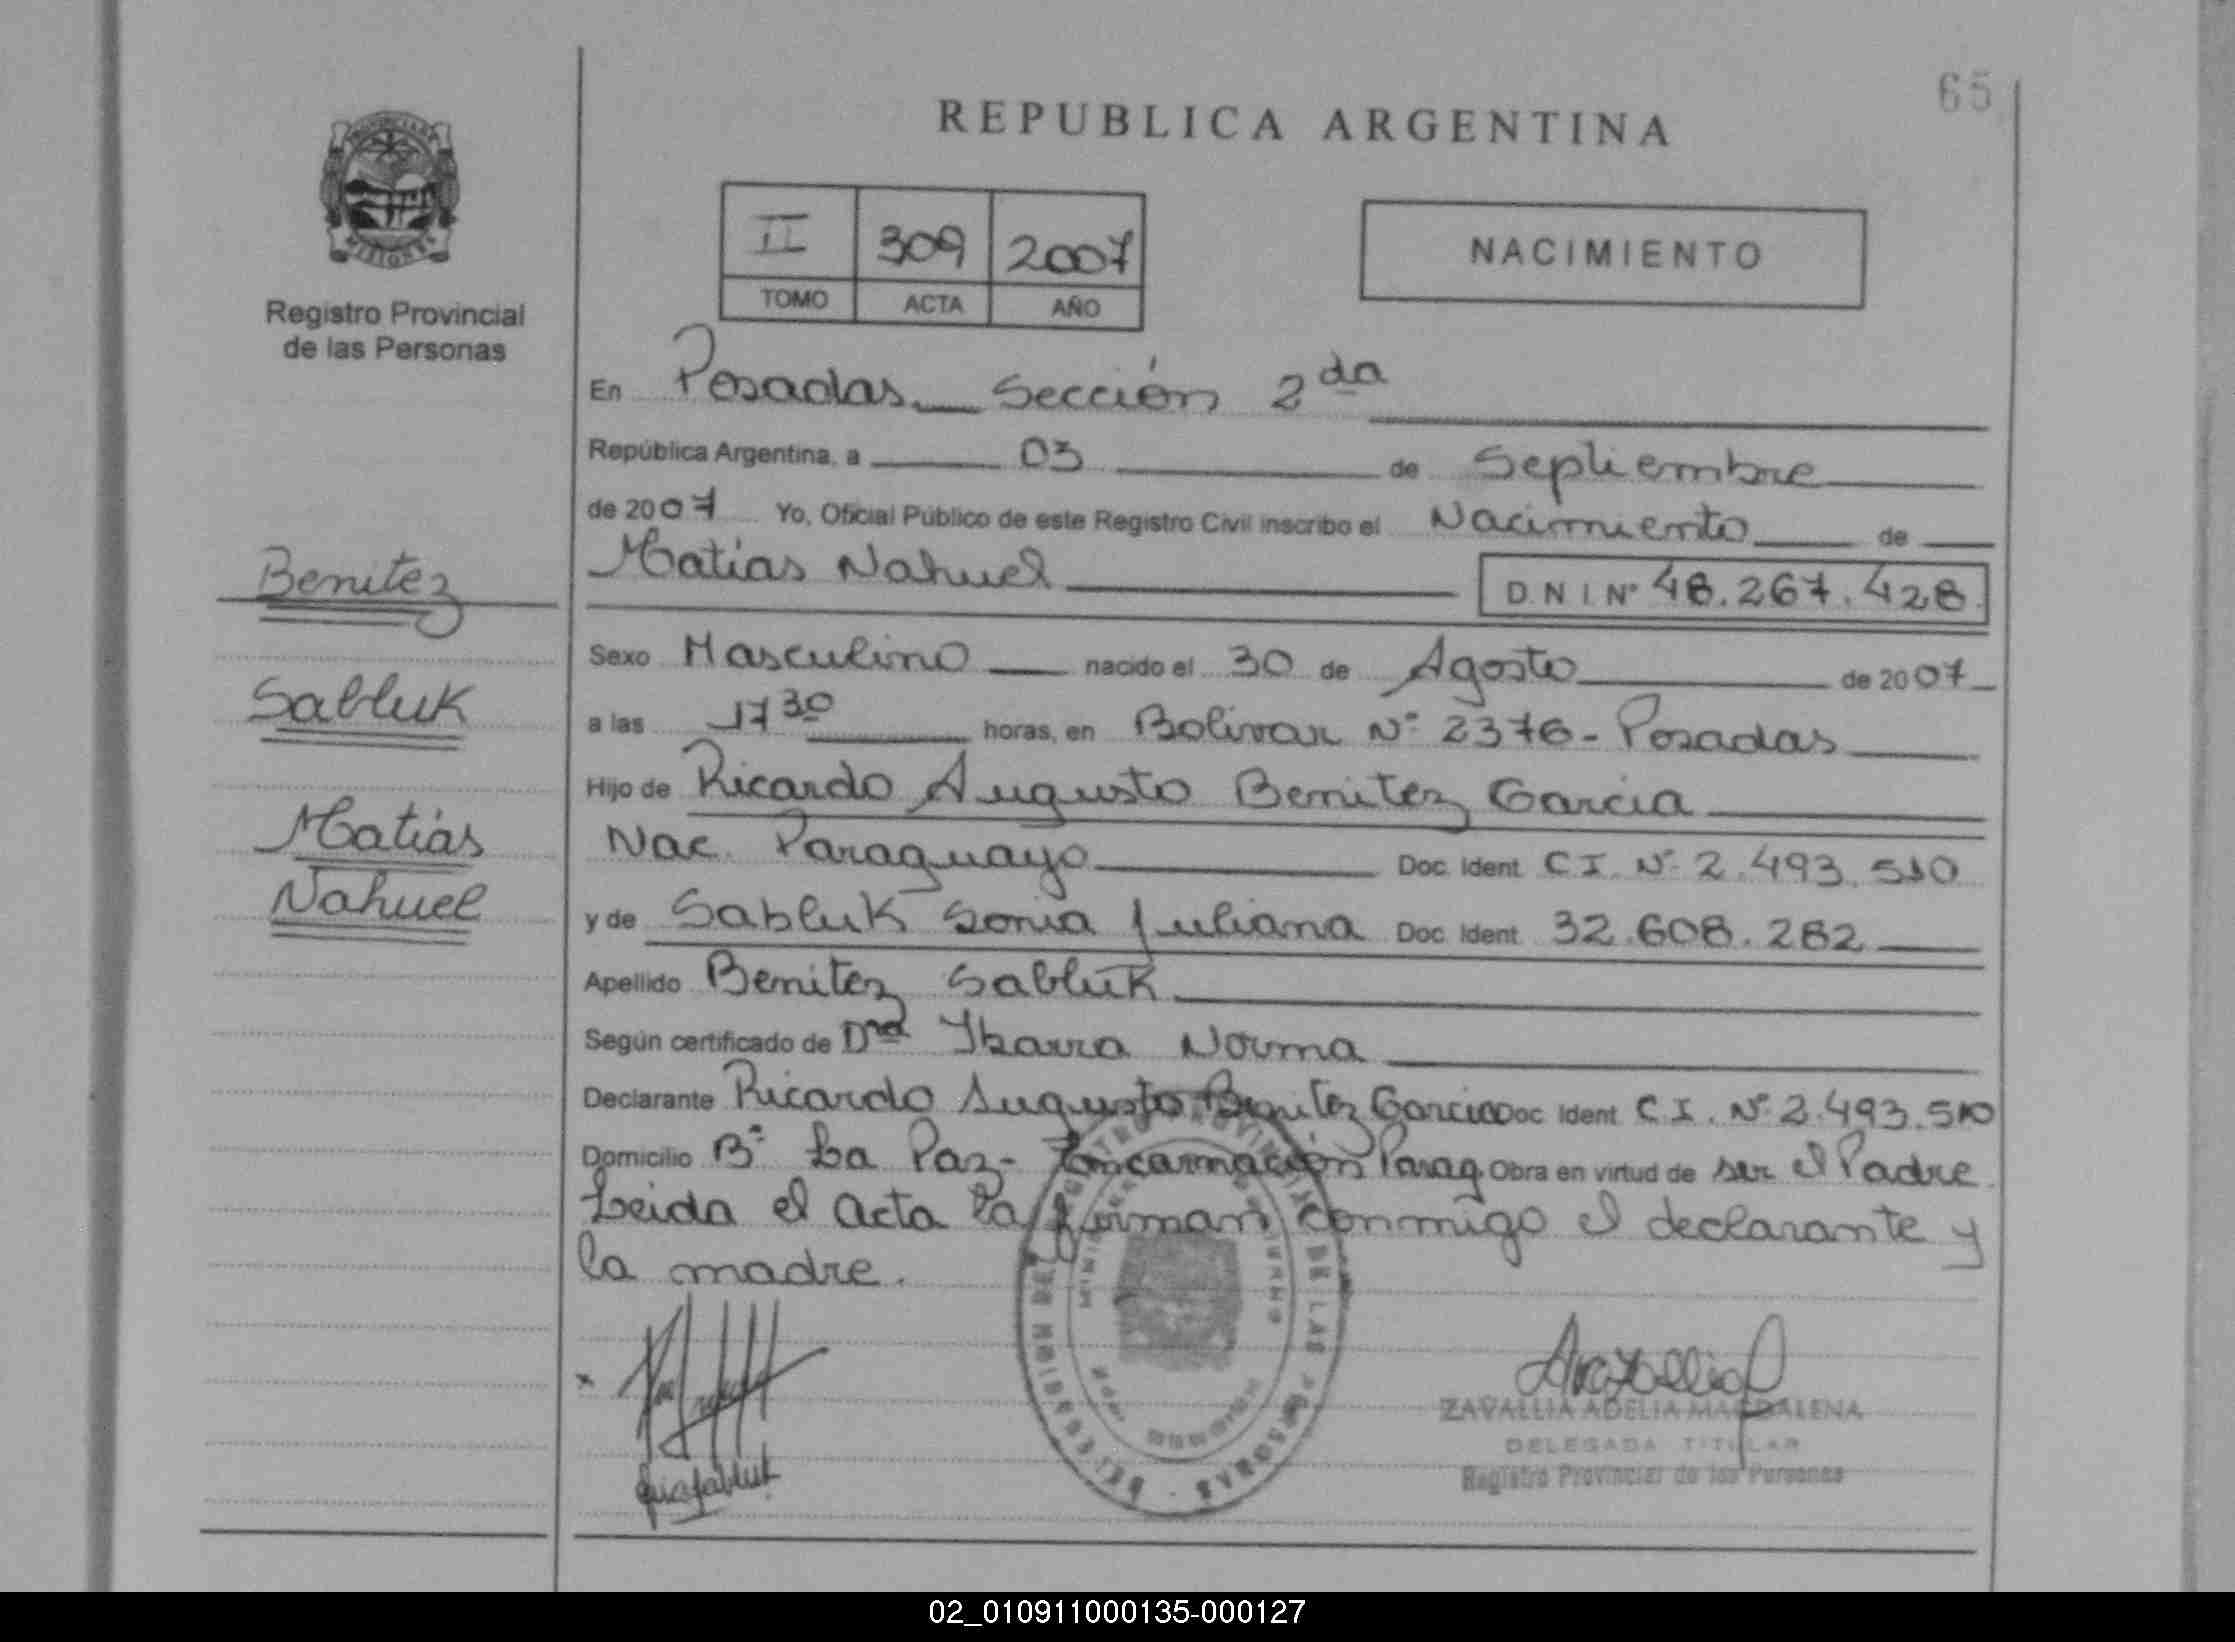 65
REPUBLICA ARGENTINA
PROVINCIA DE
MISIONES
Registro Provincial
de las Personas
II 309 2007
TOMO ACTA AÑO
NACIMIENTO
En Posadas Sección 2da
República Argentina, a 03 de Septiembre
de 2007 Yo, Oficial Público de este Registro Civil inscribo el Nacimiento de
Matias Nahuel D.N.I. Nº 48.267.428
Sexo Masculino nacido el 30 de Agosto de 2007
a las 17 30 horas, en Bolivar Nº 2376 - Posadas
Hijo de Ricardo Augusto Benitez Garcia
Nac. Paraguayo Doc. Ident. C.I. Nº 2.493.510
y de Sabluk Sonia Juliana Doc. Ident. 32.608.282
Apellido Benitez Sabluk
Según certificado de Dra Ibarra Norma
Declarante Ricardo Augusto Benitez Garcia Doc Ident C.I. Nº 2.493.510
Domicilio Bº La Paz - Encarnación Parag Obra en virtud de ser el Padre.
Leida el acta la firman conmigo el declarante y
la madre.
Benitez
Sabluk
Matias
Nahuel
ZAVALLIA ADELIA MAGDALENA
DELEGADA TITULAR
Registro Provincial de las Personas
02_010911000135-000127